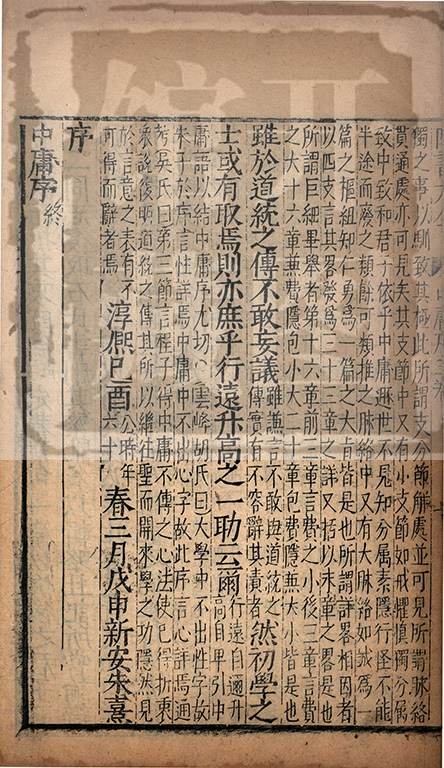 獨之事以馴致其極此所謂支分節解處並可見所謂脉絡
貫通處亦可見矣其支節中又有小支節如戒懼慎獨分屬
致中致和君子依乎中庸遯世不見知分屬素隱行怪不能
半途而廢之類餘可類推之脉絡中又有大脉絡如誠為
篇之樞紐知仁勇為一篇之大㫖皆是也所謂詳畧相因者
以四支言其畧發為三十三章之詳又括以末章之畧是也
所謂巨細畢舉者第十六章前三章言費之小後三章言費
之大十六章兼費隱包小大二十章包費隱兼大小皆是也
雖於道統之傳不敢妄議雖謙言不敢與道統之傳實有不容辭其責者然初學之
士或有取焉則亦庶乎行遠升高之一助云爾行遠自邇升高自卑引中
庸語以結中庸序尤切○雲峰胡氏曰大學中不出性字故
朱子於序言性詳焉中庸中不出心字故此序言心詳焉通
考吳氏曰第三節言程子得中庸不傳之心法使已得折衷
衆説復明道統之傳其所以繼往聖而開來學之功隱然見
於言意之表有不可得而辭者焉淳熈巳酉公時年六十春三月戊申新安朱熹
序
中庸序終